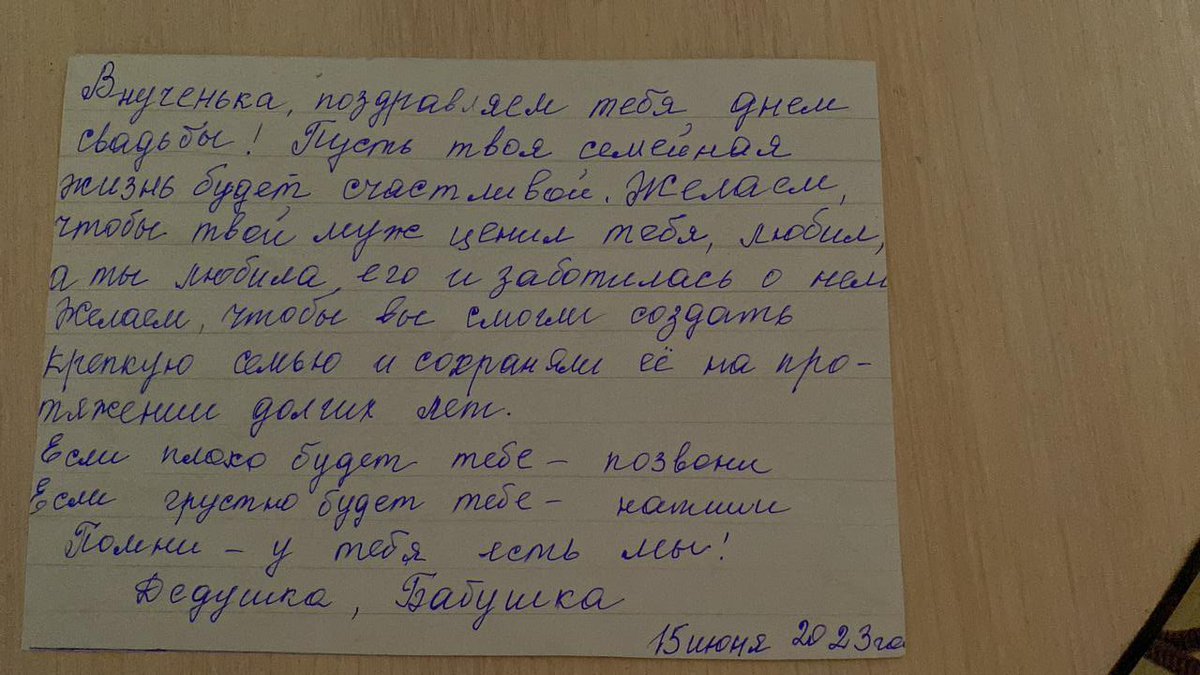 Внученька, поздравляем тебя днем
свадьбы! Пусть твоя семейная
жизнь будет счастливой. Желаем,
чтобы твой муж ценил тебя, любил,
а ты любила его и заботилась о нем
Желаем, чтобы вы смогли создать
крепкую семью и сохраняли её на про-
тяжении долгих лет.
Если плохо будет тебе – позвони
Если грустно будет тебе – напиши
Помни – у тебя есть мы!
Дедушка, Бабушка
15 июня 2023 го